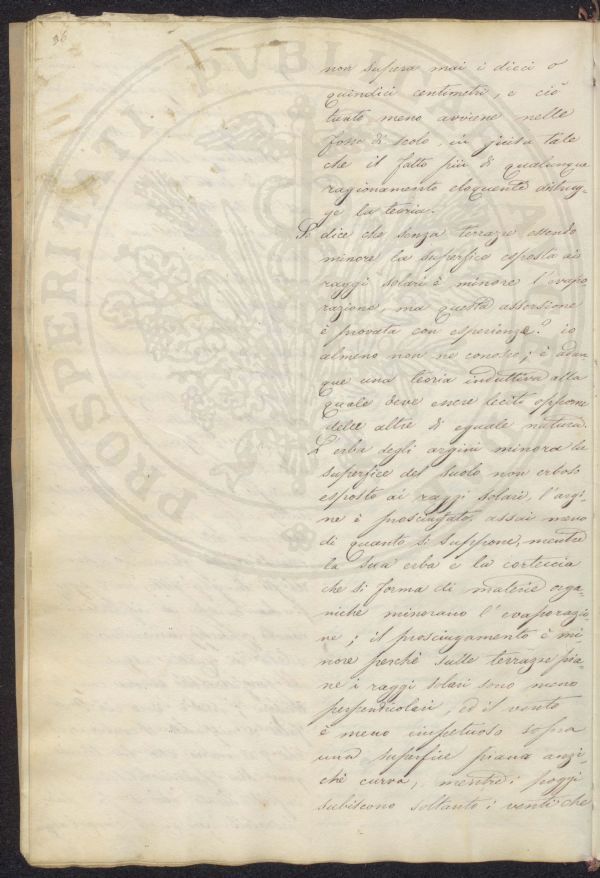 36
non supera mai i dieci o
quindici centimetri, e ciò
tanto meno avviene nelle
fosse di scolo, in guisa tale
che il fatto più di qualunque
ragionamento eloquente distrug-
ge la teoria.
Si dice che senza terrazze essendo
minore la superfice esposta ai
raggi solari è minore l'evapo
razione, ma questa asserzione
è provata con esperienze? io
almeno non ne conosco; è adun
que una teoria induttiva alla
quale deve essere lecito opporne
delle altre di eguale natura.
L'erba degli argini minora la
superfice del suolo non erboso
esposto ai raggi solari, l'argi-
ne è prosciugato assai meno
di quanto si suppone, mentre
la sua erba e la corteccia
che si forma di materie orga-
niche minorano l'evaporazio-
ne; il prosciugamento è mi-
nore perchè sulle terrazze pia-
ne i raggi solari sono meno
perpendicolari, ed il vento
è meno impetuoso sopra
una superfice piana anzi-
chè curva, mentre i poggi
subiscono soltanto i venti che